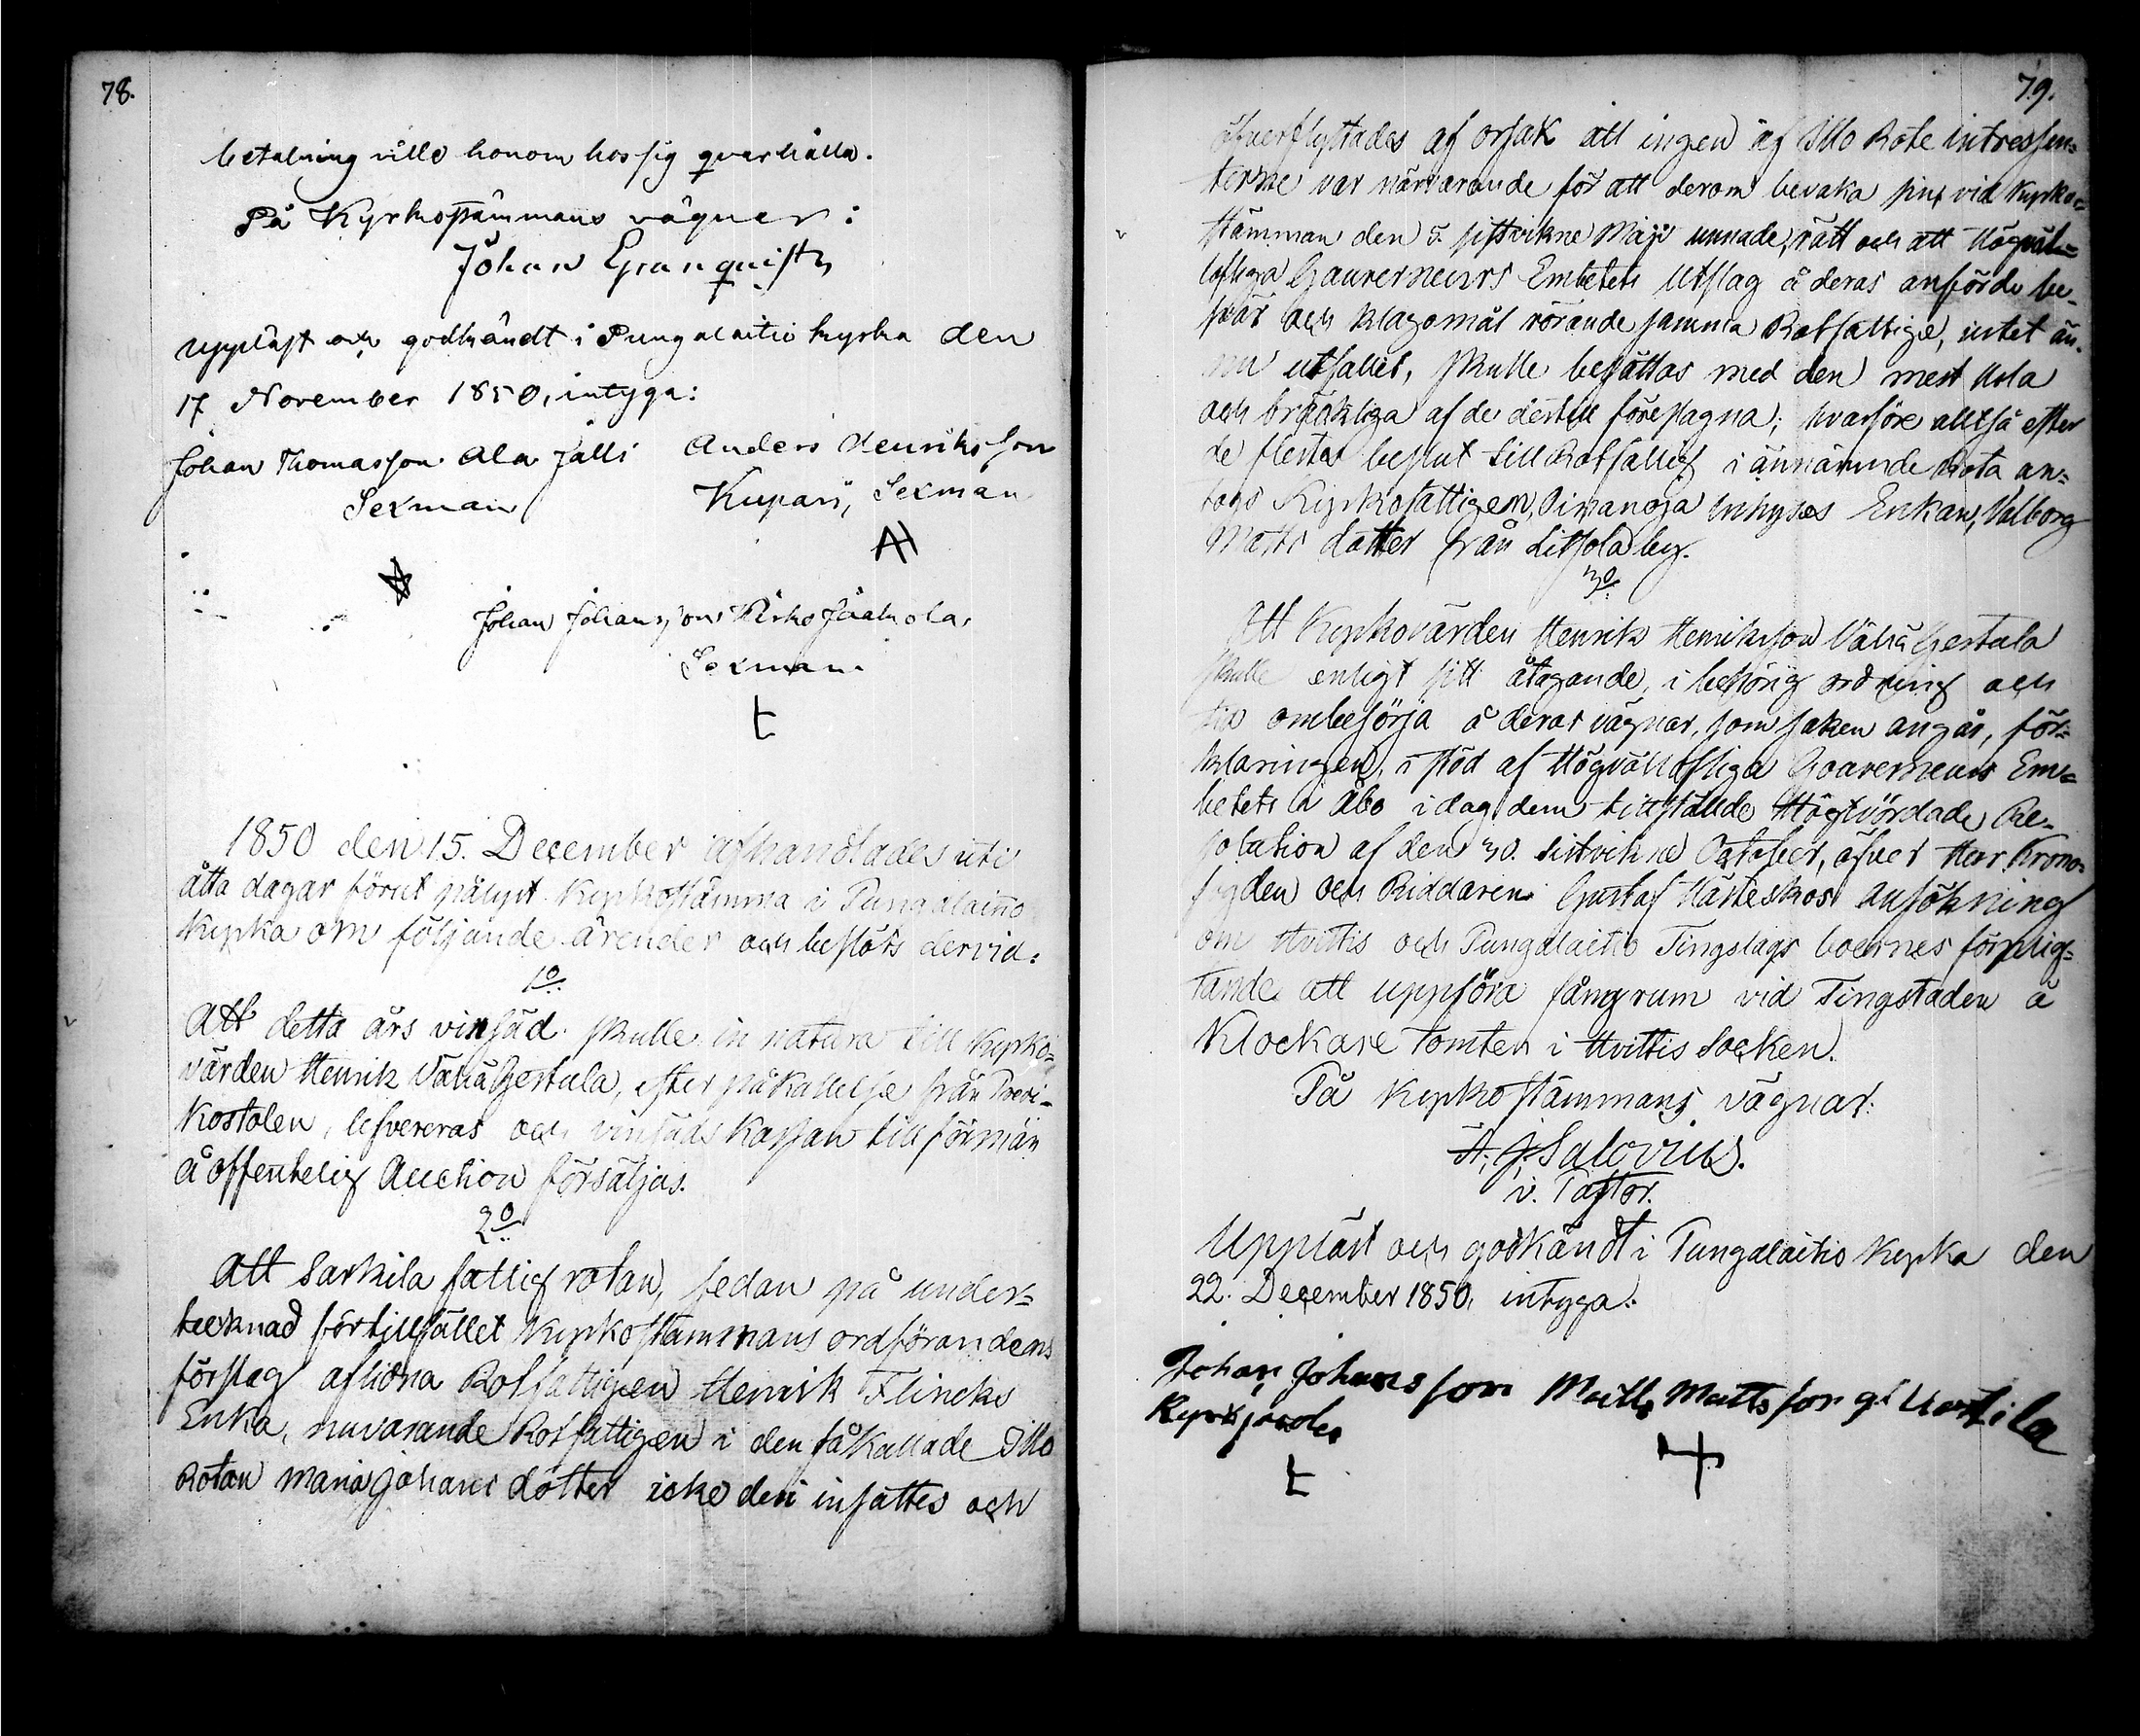 78.
betalning ville honom hos sig qvarhålla.
På Kyrkostämmans vägner:
Johan Granquist
uppläst och godkändt i Pungalaitio kyrka den
17 November 1850, intyga:
Johan Thomasson Ala Jalli Anders Henriksson
Sexman Kupari, Sexman
AH
Johan Johansson Kirko Jaakola,
Sexman.
t
1850 den 15. December afhandlades uti
åtta dagar förut pålyst Kyrkostämma i Pungalaitio
Kyrka om följande ärender och beslöts dervid:
1o
Att detta års vinsäd skulle in natura till Kyrko-
värden Henrik Vähä Gertula, efter påkallelse från Predi-
kostolen, lefvereras och vinsäds Kassan till förmån
å offentelig Auction försäljas.
2o
Att Sarkila fattig rotan, sedan på under-
tecknad för tillfället Kyrkostämmans ordförandens
förslag aflidna Rotfattigen Henrik Flincks
Enka, nuvarande Rotfattigen i den så kallade Illo
Rotan Maria Johans dotter icke deri insattes och
79.
öfverflyttades af orsak att ingen af Illo Rote intressen-
terne var närvarande för att derom bevaka sin vid Kyrko-
stämman den 5. sistvikne Maji unnade rätt och att Högväl-
loflige Gouverneurs Embetets Utslag å deras anförde be-
svär och klagomål rörande samma Rotfattige, intet än-
nu utfallit, skulle besättas med den mest usla
och bräckliga af de dertill föreslagna; hvarföre alltså efter
de flestas beslut till Rotfattig i ännämnde Rota an-
togs Kyrkofattigen, Oivanoja Inhyses Enkan, Valborg
Matts dotter från Litsola by.
3o
Att Kyrkovärden Henrik Henriksson Vähä Gertula
skulle enligt sitt åtagande, i behörig ordning och
tid ombesörja å deras vägnar, som saken angår, för-
klaringen, i stöd af Högvälloflige Gouverneurs Em-
betets i Åbo idag dem tillstälde Högtvördade Re-
solution af den 30. sistvikne October, öfver Herr Krono-
fogden och Riddaren Gustaf Hästeskos ansökning
om Hvittis och Pungalaitio Tingslags boernes förplig-
tande att uppföra fångrum vid Tingstaden å
Klockare Tomten i Hvittis Socken.
På Kyrkostämmans vägnar:
A. J. Salovius.
v. Pastor.
Uppläst och godkändt i Pungalaitio Kyrka den
22. December 1850, intyga:
Johan Johansson Matts Mattsson Uotila
t